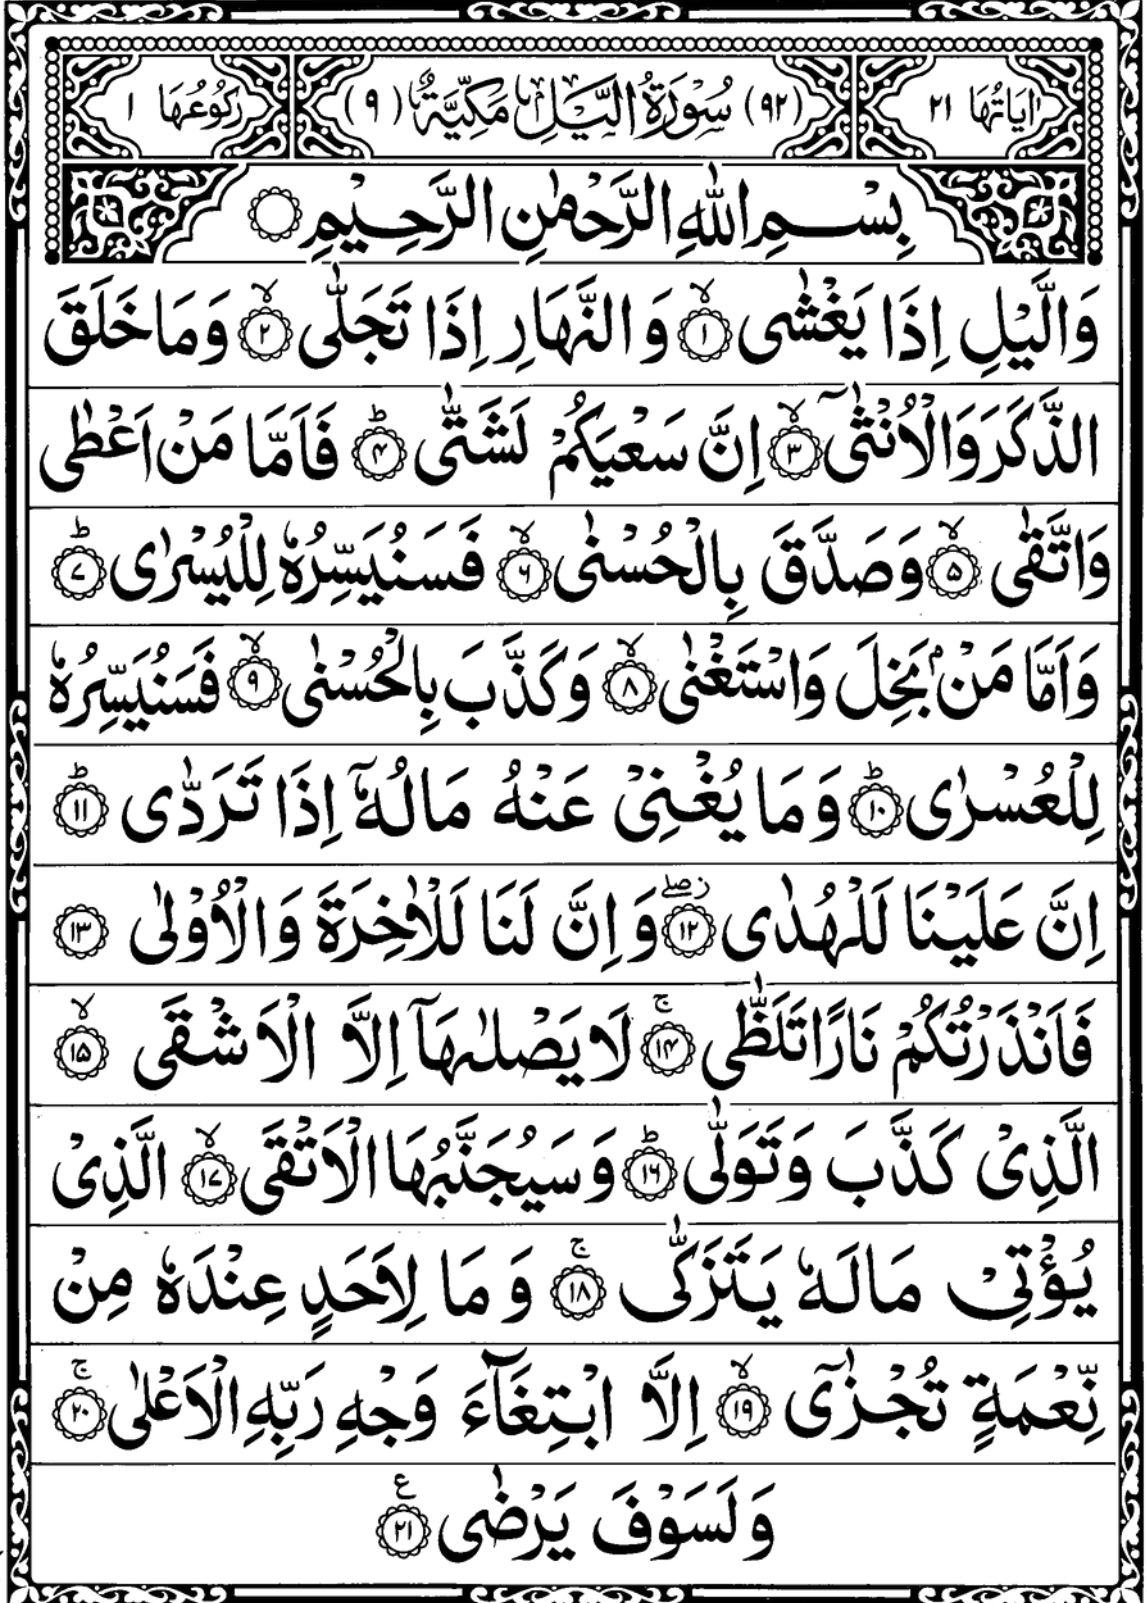 اٰیَاتُهَا ۲۱ (۹۲) سُوْرَةُ الَّیْلِ مَكِّیَّةٌ (۹) رَكُوْعُهَا ۱
بِسْمِ اللّٰهِ الرَّحْمٰنِ الرَّحِیْمِ
وَالَّیْلِ اِذَا یَغْشٰىۙ‏﴿۱﴾ وَالنَّهَارِ اِذَا تَجَلّٰىۙ‏﴿۲﴾ وَمَا خَلَقَ
الذَّكَرَ وَالْاُنْثٰۤىۙ‏﴿۳﴾ اِنَّ سَعْیَكُمْ لَشَتّٰىؕ‏﴿۴﴾ فَاَمَّا مَنْ اَعْطٰى
وَاتَّقٰىۙ‏﴿۵﴾ وَصَدَّقَ بِالْحُسْنٰىۙ‏﴿۶﴾ فَسَنُیَسِّرُهٗ لِلْیُسْرٰىؕ‏﴿۷﴾
وَاَمَّا مَنْۢ بَخِلَ وَاسْتَغْنٰىۙ‏﴿۸﴾ وَكَذَّبَ بِالْحُسْنٰىۙ‏﴿۹﴾ فَسَنُیَسِّرُهٗ
لِلْعُسْرٰىؕ‏﴿۱۰﴾ وَمَا یُغْنِیْ عَنْهُ مَالُهٗۤ اِذَا تَرَدّٰىؕ‏﴿۱۱﴾
اِنَّ عَلَیْنَا لَلْهُدٰىؗۖ‏﴿۱۲﴾ وَاِنَّ لَنَا لَلْاٰخِرَةَ وَالْاُوْلٰى‏﴿۱۳﴾
فَاَنْذَرْتُكُمْ نَارًا تَلَظّٰىۚ‏﴿۱۴﴾ لَا یَصْلٰىهَاۤ اِلَّا الْاَشْقَىۙ‏﴿۱۵﴾
الَّذِیْ كَذَّبَ وَتَوَلّٰىؕ‏﴿۱۶﴾ وَسَیُجَنَّبُهَا الْاَتْقَىۙ‏﴿۱۷﴾ الَّذِیْ
یُؤْتِیْ مَالَهٗ یَتَزَكّٰىۚ‏﴿۱۸﴾ وَمَا لِاَحَدٍ عِنْدَهٗ مِنْ
نِّعْمَةٍ تُجْزٰۤىۙ‏﴿۱۹﴾ اِلَّا ابْتِغَآءَ وَجْهِ رَبِّهِ الْاَعْلٰىۚ‏﴿۲۰﴾
وَلَسَوْفَ یَرْضٰى‏﴿۲۱﴾ ع